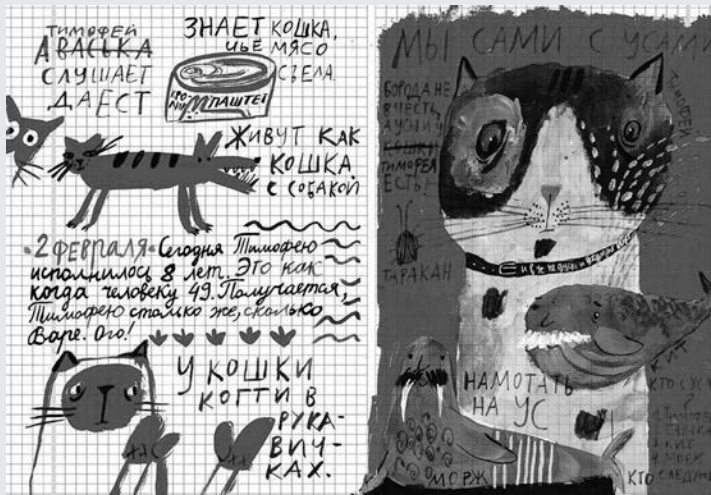 ТИМОФЕЙ
А ВАСЬКА
СЛУШАЕТ
ДА ЕСТ
ЗНАЕТ КОШКА,
ЧЬЁ МЯСО
СЪЕЛА.
ПАШТЕТ
ЖИВУТ КАК
КОШКА
С СОБАКОЙ
•2 ФЕВРАЛЯ• Сегодня Тимофею
исполнилось 8 лет. Это как
когда человеку 49. Получается,
Тимофею столько же, сколько
Варе. Ого!
У КОШКИ
КОГТИ В
РУКА-
ВИЧ-
КАХ.
МЫ САМИ С УСАМИ
БОРОДА НЕ
В ЧЕСТЬ,
А УСЫ И У
КОШКИ
ТИМОФЕЯ
ЕСТЬ!
ТИМОФЕЙ
ТАРАКАН
КИТ
НАМОТАТЬ
НА УС
МОРЖ
КТО С УСАМИ
?
КИТ
МОРЖ
КТО СЛЕДУЮ